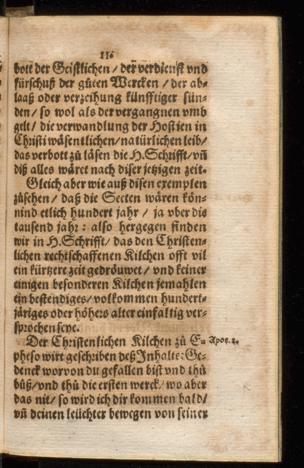 116
bott der Geistlichen / der verdienst vnd
fürschuß der güten Wercken / der ab-
laaß oder verzeihung künfftiger sün-
den / so wol als der vergangnen vmb
gelt / die verwandlung der Hostien in
Christi wäsentlichen / natürlichen leib /
das verbott zů läsen die H. Schrifft / vñ
diß alles wäret nach diser jetzigen zeit.
Gleich aber wie auß disen exemplen
zůsehen / daß die Secten wären kön-
nind etlich hundert jahr / ja vber dis
tausend jahr: also hergegen finden
wir in H. Schrifft / das den Christen-
lichen rechtschaffenen Kilchen offt vil
ein kürtzere zeit gedröuwet / vnd keiner
einigen besonderen Kilchen jemahlen
ein bestendiges / volkommen hundert-
järiges oder höhers alter einfaltig ver-
sprochen seye.
Der Christenlichen Kilchen zů E-
pheso wirt geschriben deß Inhalts: Ge-
denck worvon du gefallen bist vnd thů
bůß / vnd thů die ersten werck / wo aber
das nit / so wird ich dir kommen bald /
vñ deinen leüchter bewegen von seiner
Apoc. 2.